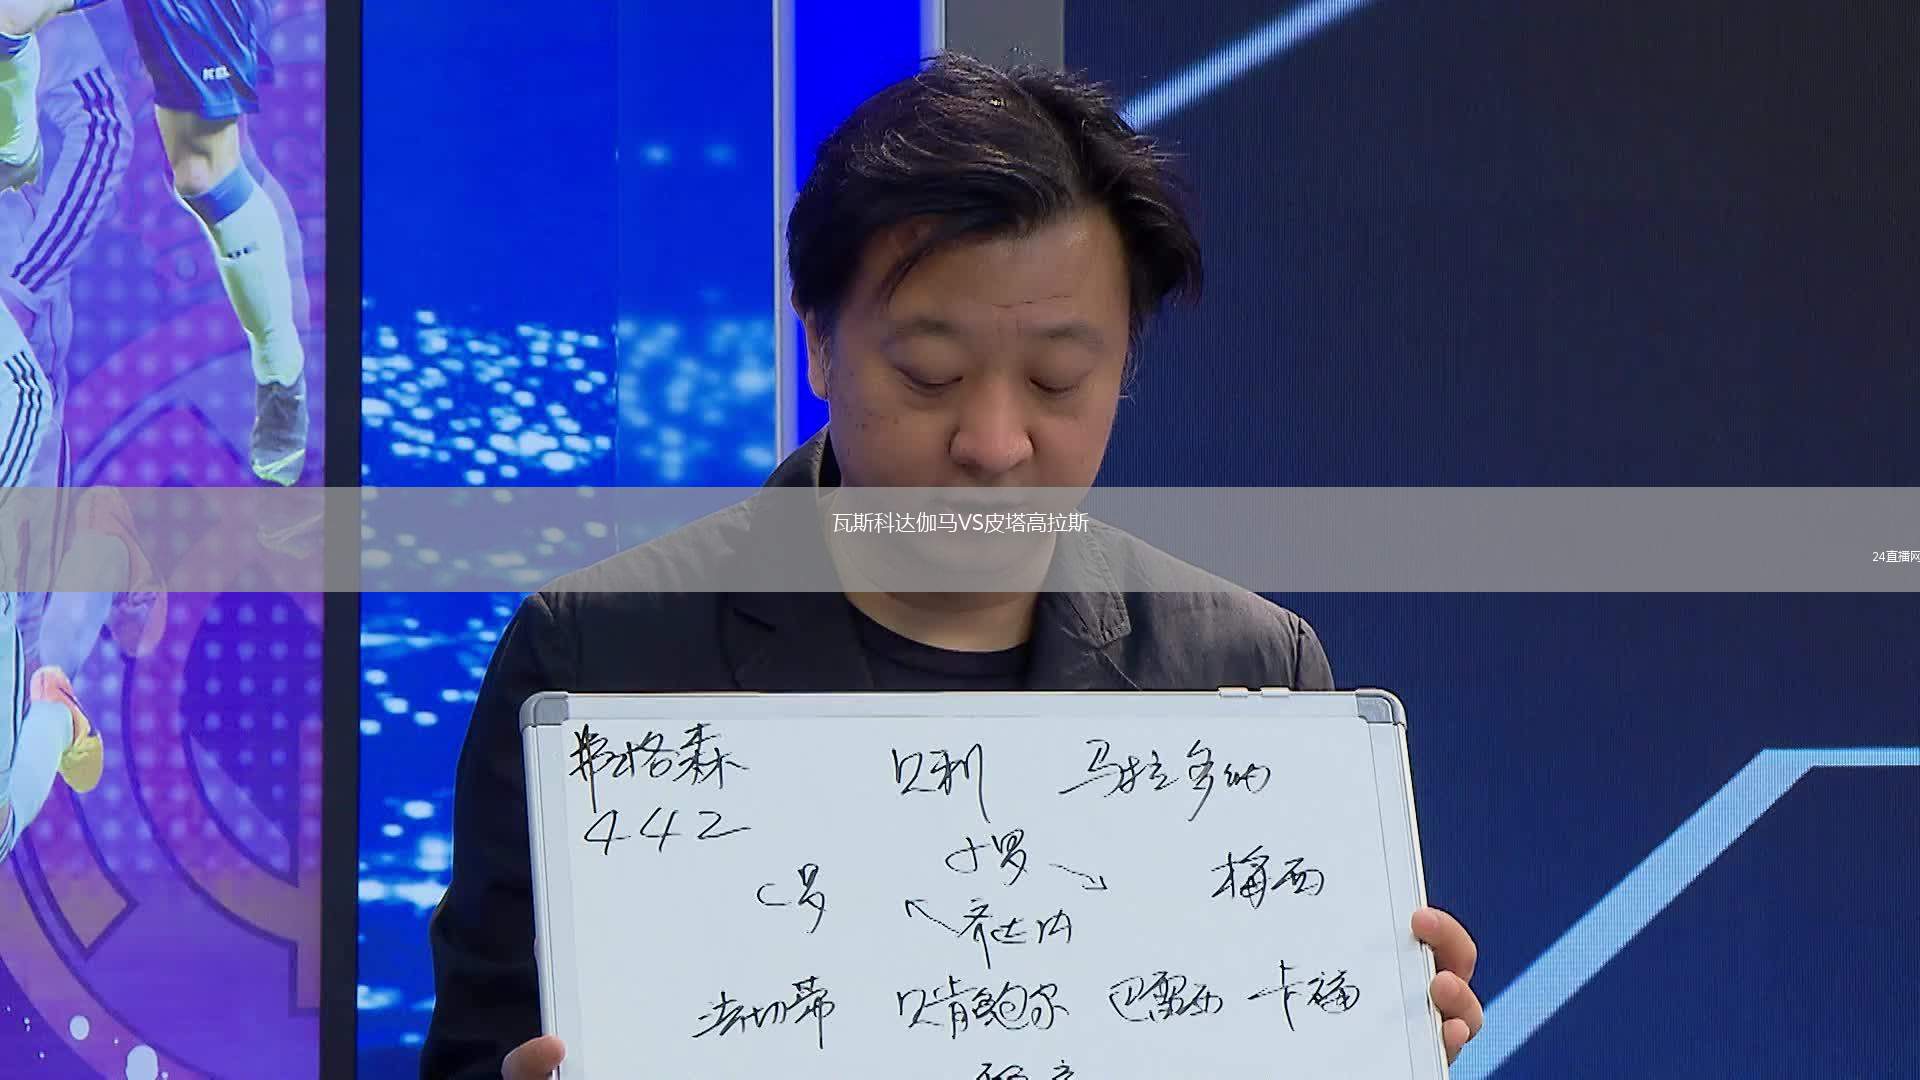 瓦斯科达伽马VS皮塔高拉斯
24直播网
弗格森 贝利 马拉多纳
442
小罗
C罗 梅西
齐达内
法切蒂 贝肯鲍尔 巴雷西 卡福